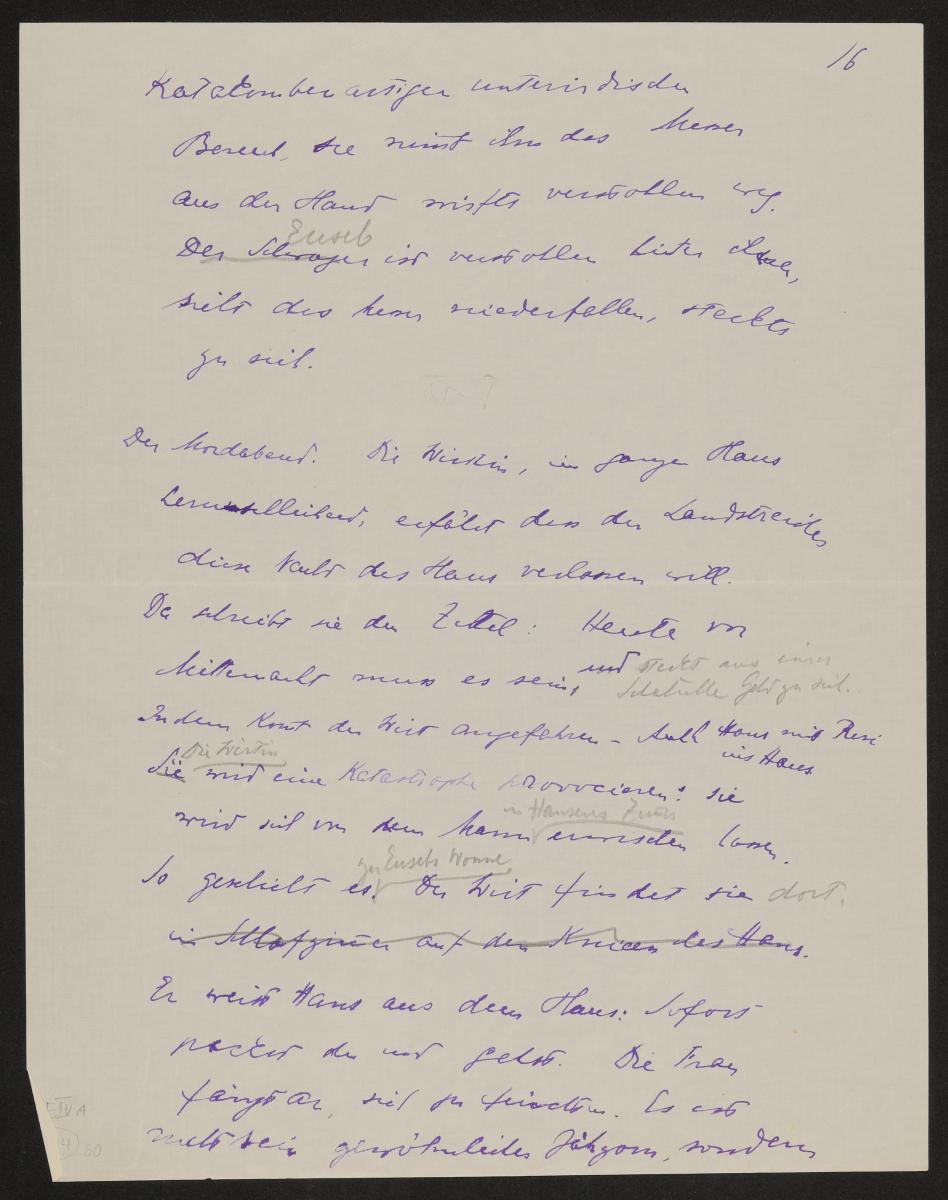 16
Katakombenartigen unterirdischen
Bereich, sie nimmt ihm das Messer
aus der Hand wirfts verstohlen weg.
Euseb
Der Schwager ist verstohlen hinter ihnen,
sieht das Messer niederfallen, steckts
zu sich.
Der Mordabend. Die Wirtin, im ganzen Haus
erfährt dass der Landstreicher
diese Nacht das Haus verlassen will.
Da schreibt sie den Zettel: Heute vor
Mitternacht muss es sein, und steckt aus einer
Schatulle Geld zu sich.
Indem komt der Wirt angefahren – Auch Hans mit Resi
ins Haus.
Die Wirtin
Sie wird eine Katastrophe provocieren: sie
in Hansens Zimmer
wird sich von dem Mann erwischen lassen.
zu Eusebs Wonne
So geschieht es. Der Wirt findet sie dort.
im Schlafzimmer auf den Knieen des Hans.
Er weist Hans aus dem Haus: Sofort
packst du und gehst. Die Frau
fängt an, sich zu fürchten. Es ist
nicht sein gewöhnlicher Jähzorn, sondern
IV A
80